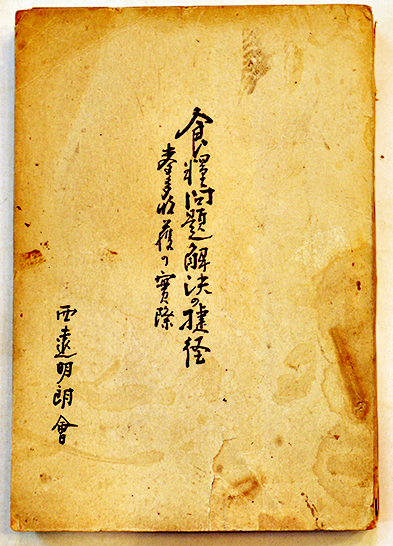 食糧問題解決の捷径
麥多收穫の實際
西遠明朗會